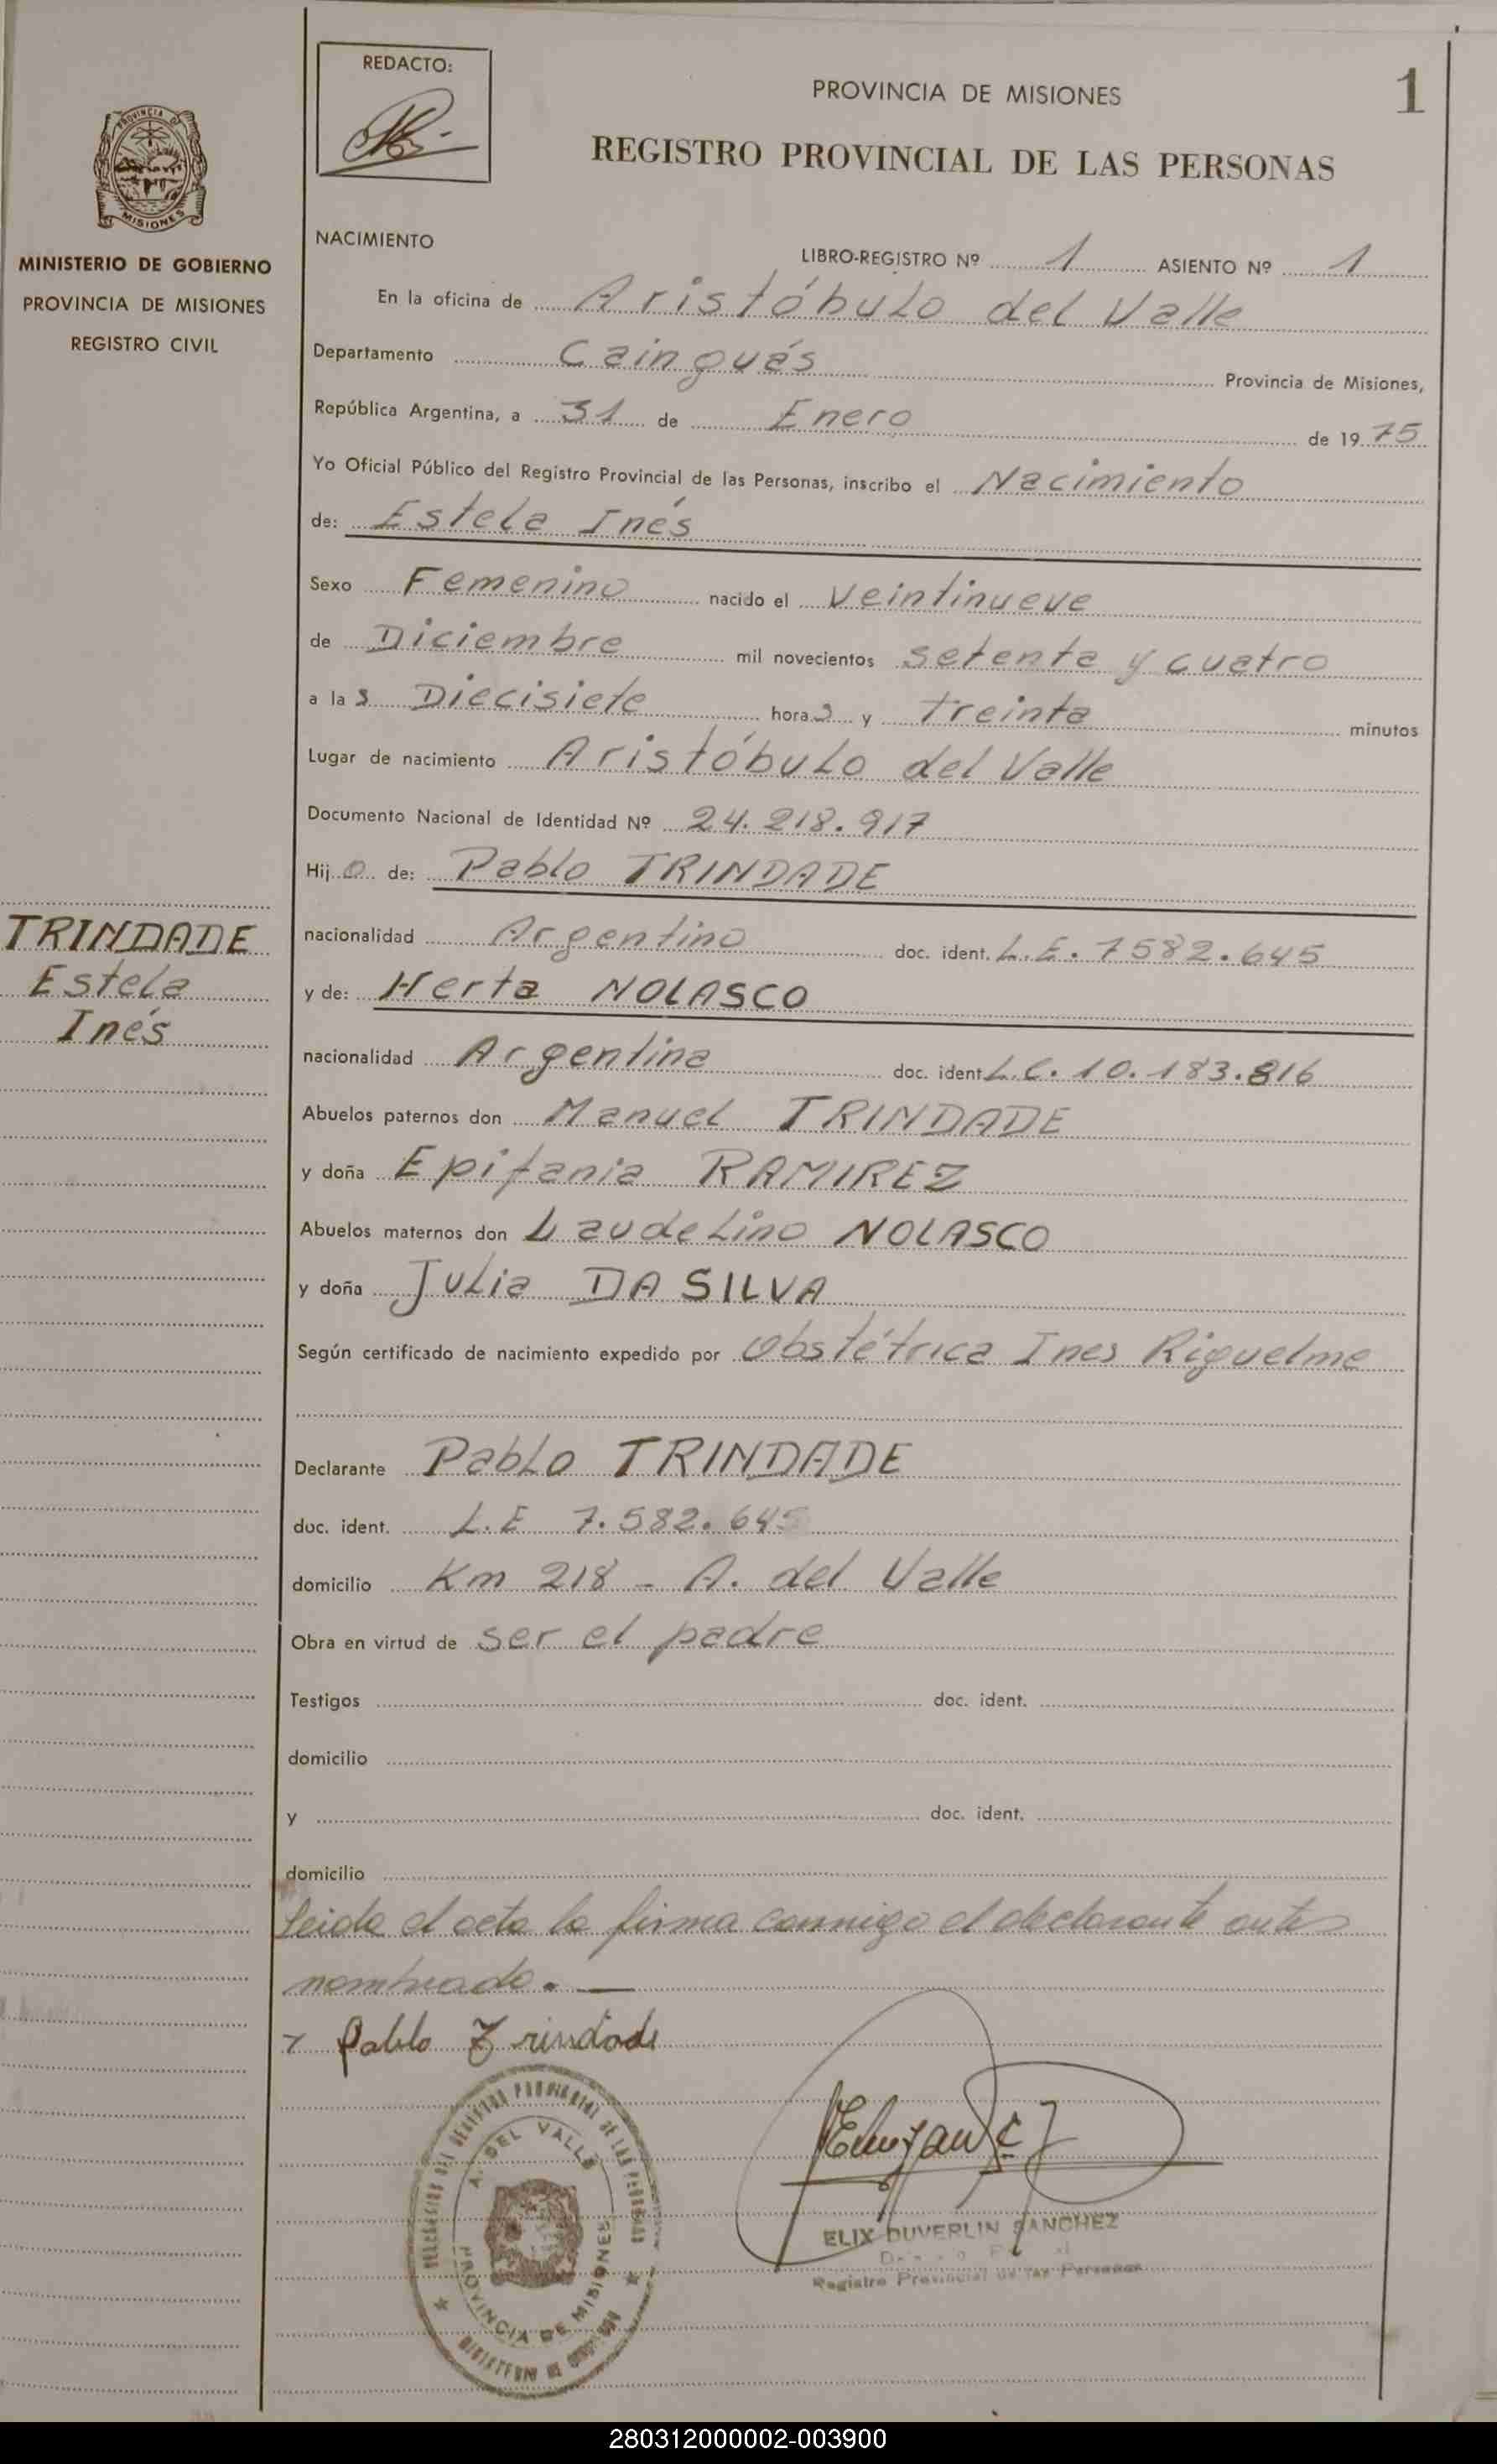 REDACTO:
PROVINCIA DE MISIONES
1
REGISTRO PROVINCIAL DE LAS PERSONAS
PROVINCIA D
MISIONES
MINISTERIO DE GOBIERNO
PROVINCIA DE MISIONES
REGISTRO CIVIL
NACIMIENTO
LIBRO-REGISTRO Nº 1 ASIENTO Nº 1
En la oficina de Aristóbulo del Valle
Departamento Cainguás Provincia de Misiones,
República Argentina, a 31 de Enero de 1975
Yo Oficial Público del Registro Provincial de las Personas, inscribo el Nacimiento
de: Estela Inés
Sexo Femenino nacido el veintinueve
de Diciembre mil novecientos setenta y cuatro
a las Diecisiete horas y treinta minutos
Lugar de nacimiento Aristóbulo del Valle
Documento Nacional de Identidad Nº 24.218.917
Hijo de: Pablo TRINDADE
nacionalidad Argentino doc. ident. L.E. 7582.645
y de: Herta NOLASCO
nacionalidad Argentina doc. ident L.C. 10.183.816
TRINDADE
Estela
Inés
Abuelos paternos don Manuel TRINDADE
y doña Epifania RAMIREZ
Abuelos maternos don Laudelino NOLASCO
y doña Julia DA SILVA
Según certificado de nacimiento expedido por Obstétrica Ines Riquelme
Declarante Pablo TRINDADE
doc. ident. L.E 7.582.645
domicilio Km 218 - A. del Valle
Obra en virtud de ser el padre
Testigos doc. ident.
domicilio
y doc. ident.
domicilio
Leida el acta la firma conmigo el declarante antes
nombrado. —
Pablo Trindade
DELEGACION DEL REGISTRO PROVINCIAL DE LAS PERSONAS
A. DEL VALLE
PROVINCIA DE MISIONES
MINISTERIO DE GOBIERNO
ELIX DUVERLIN SANCHEZ
Registro Provincial de las Personas
280312000002-003900